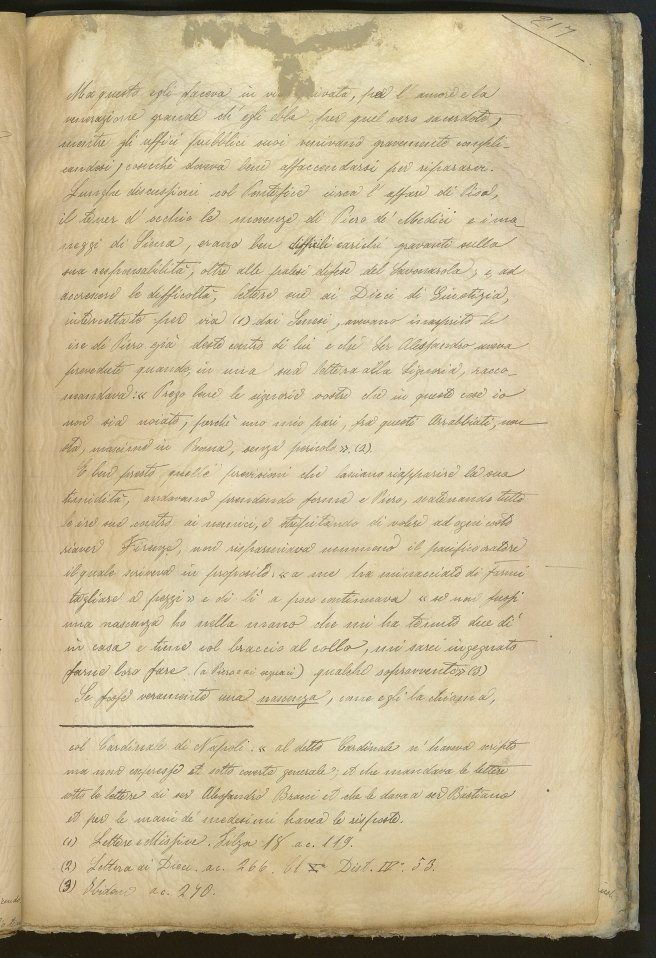 217
Ma questo egli faceva in via privata, per l'amore e la
venerazione grande ch'egli ebbe per quel vero sacerdote,
mentre gli uffici pubblici suoi venivano gravemente compli-
candosi, cosicchè doveva ben affaccendarsi per ripararvi.
Lunghe discussioni col Pontefice circa l'affare di Pisa,
il tener d'occhio le movenze di Piero de' Medici e i ma-
neggi di Siena, erano ben difficili carichi gravanti sulla
sua responsabilità, oltre alle palesi difese del Savonarola; e, ad
accrescere le difficoltà, lettere sue ai Dieci di Giustizia,
intercettate per via (1) dai Senesi, avevano inasprito le
ire di Piero già deste contro di lui e che Ser Alessandro aveva
prevedute quando, in una sua lettera alla Signoria, racco-
mandava: « Prego bene le signorie vostre che in questo caso io
non sia noiato, perchè uno mio pari, fra questi Arrabbiati, non
sta, maxime in Roma, senza pericolo ». (2)
E ben presto quelle previsioni che lasciano riapparire la sua
timidità, andavano prendendo forma e Piero, scatenando tutte
le ire sue contro ai nemici, e strepitando di volere ad ogni costo
riaver Firenze, non risparmiava nemmeno il pacifico oratore
il quale scriveva in proposito: « a me ha minacciato di farmi
tagliare a pezzi » e di lì a poco continuava « se non fussi
una nascenza ho nella mano che mi ha tenuto due dì
in casa e tiene col braccio al collo, mi sarei ingegnato
farne loro fare (a Piero e ai seguaci) qualche sopravvento » (3)
Se fosse veramente una nascenza, come egli la chiama,
col Cardinale di Napoli: « al detto Cardinale n'haveva scripto
ma non expresse et sotto coverta generale; et che mandava le lettere
sotto le lettere di ser Alessandro Bracci et che le dava a ser Bastiano
et per le mani de' medesimi havea le risposte.
(1) Lettere e Missive. Filza 18 a c. 119.
(2) Lettera ai Dieci. a c. 266. Cl X Dist. IV a. 53.
(3) Ibidem a c. 270.